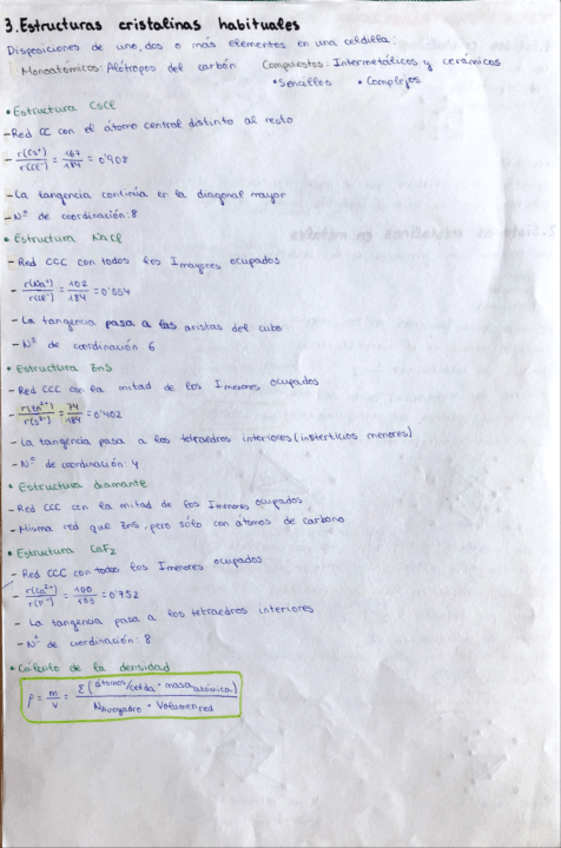 3. Estructuras cristalinas habituales
Disposiciones de uno, dos o más elementos en una celdilla:
Monoatómicos: Alótropos del carbón Compuestos: Intermetálicos y cerámicos
• Sencillos • Complejos
• Estructura CsCl
- Red CC con el átomo central distinto al resto
- r(Cs⁺)/r(Cl⁻) = 167/184 = 0'908
- La tangencia continúa en la diagonal mayor
- Nº de coordinación: 8
• Estructura NaCl
- Red CCC con todos los I mayores ocupados
- r(Na⁺)/r(Cl⁻) = 102/184 = 0'554
- La tangencia pasa a las aristas del cubo
- Nº de coordinación 6
• Estructura ZnS
- Red CCC con la mitad de los I menores ocupados
- r(Zn²⁺)/r(S²⁻) = 74/184 = 0'402
- La tangencia pasa a los tetraedros interiores (insterticios menores)
- Nº de coordinación: 4
• Estructura diamante
- Red CCC con la mitad de los I menores ocupados
- Misma red que ZnS, pero sólo con átomos de carbono
• Estructura CaF₂
- Red CCC con todos los I menores ocupados
- r(Ca²⁺)/r(F⁻) = 100/133 = 0'752
- La tangencia pasa a los tetraedros interiores
- Nº de coordinación: 8
• Cálculo de la densidad
ρ = m/v = Σ(átomos/celda · masa atómica)/N Avogadro · Volumen red